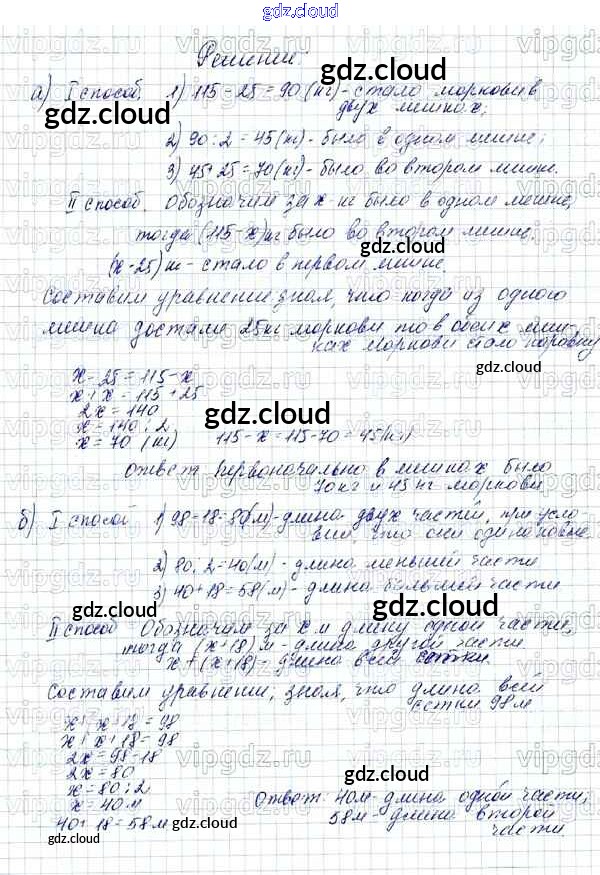 gdz.cloud
Решение:
а) I способ. 1) 115 - 25 = 90 (кг) - стало моркови в
двух мешках;
2) 90 : 2 = 45 (кг) - было в одном мешке;
3) 45 + 25 = 70 (кг) - было во втором мешке.
II способ. Обозначим за х кг было в одном мешке,
тогда (115 - х) кг было во втором мешке,
(х - 25) кг - стало в первом мешке.
Составим уравнение зная, что когда из одного
мешка достали 25 кг моркови то в обеих меш-
ках моркови стало поровну
х - 25 = 115 - х
х + х = 115 + 25
2х = 140
х = 140 : 2
х = 70 (кг) 115 - х = 115 - 70 = 45 (кг)
Ответ: Первоначально в мешках было
70 кг и 45 кг моркови
б) I способ 1) 98 - 18 = 80 (м) - длина двух частей, при усло-
вии, что они одинаковые
2) 80 : 2 = 40 (м) - длина меньшей части
3) 40 + 18 = 58 (м) - длина большей части
II способ Обозначим за х м длину одной части,
тогда (х + 18) м - длина другой части
х + (х + 18) - длина всей сетки.
Составим уравнение, зная, что длина всей
сетки 98 м
х + х + 18 = 98
х + х + 18 = 98
2х = 98 - 18
2х = 80
х = 80 : 2
х = 40 м
40 + 18 = 58 м
Ответ: 40 м - длина одной части;
58 м - длина второй
части.